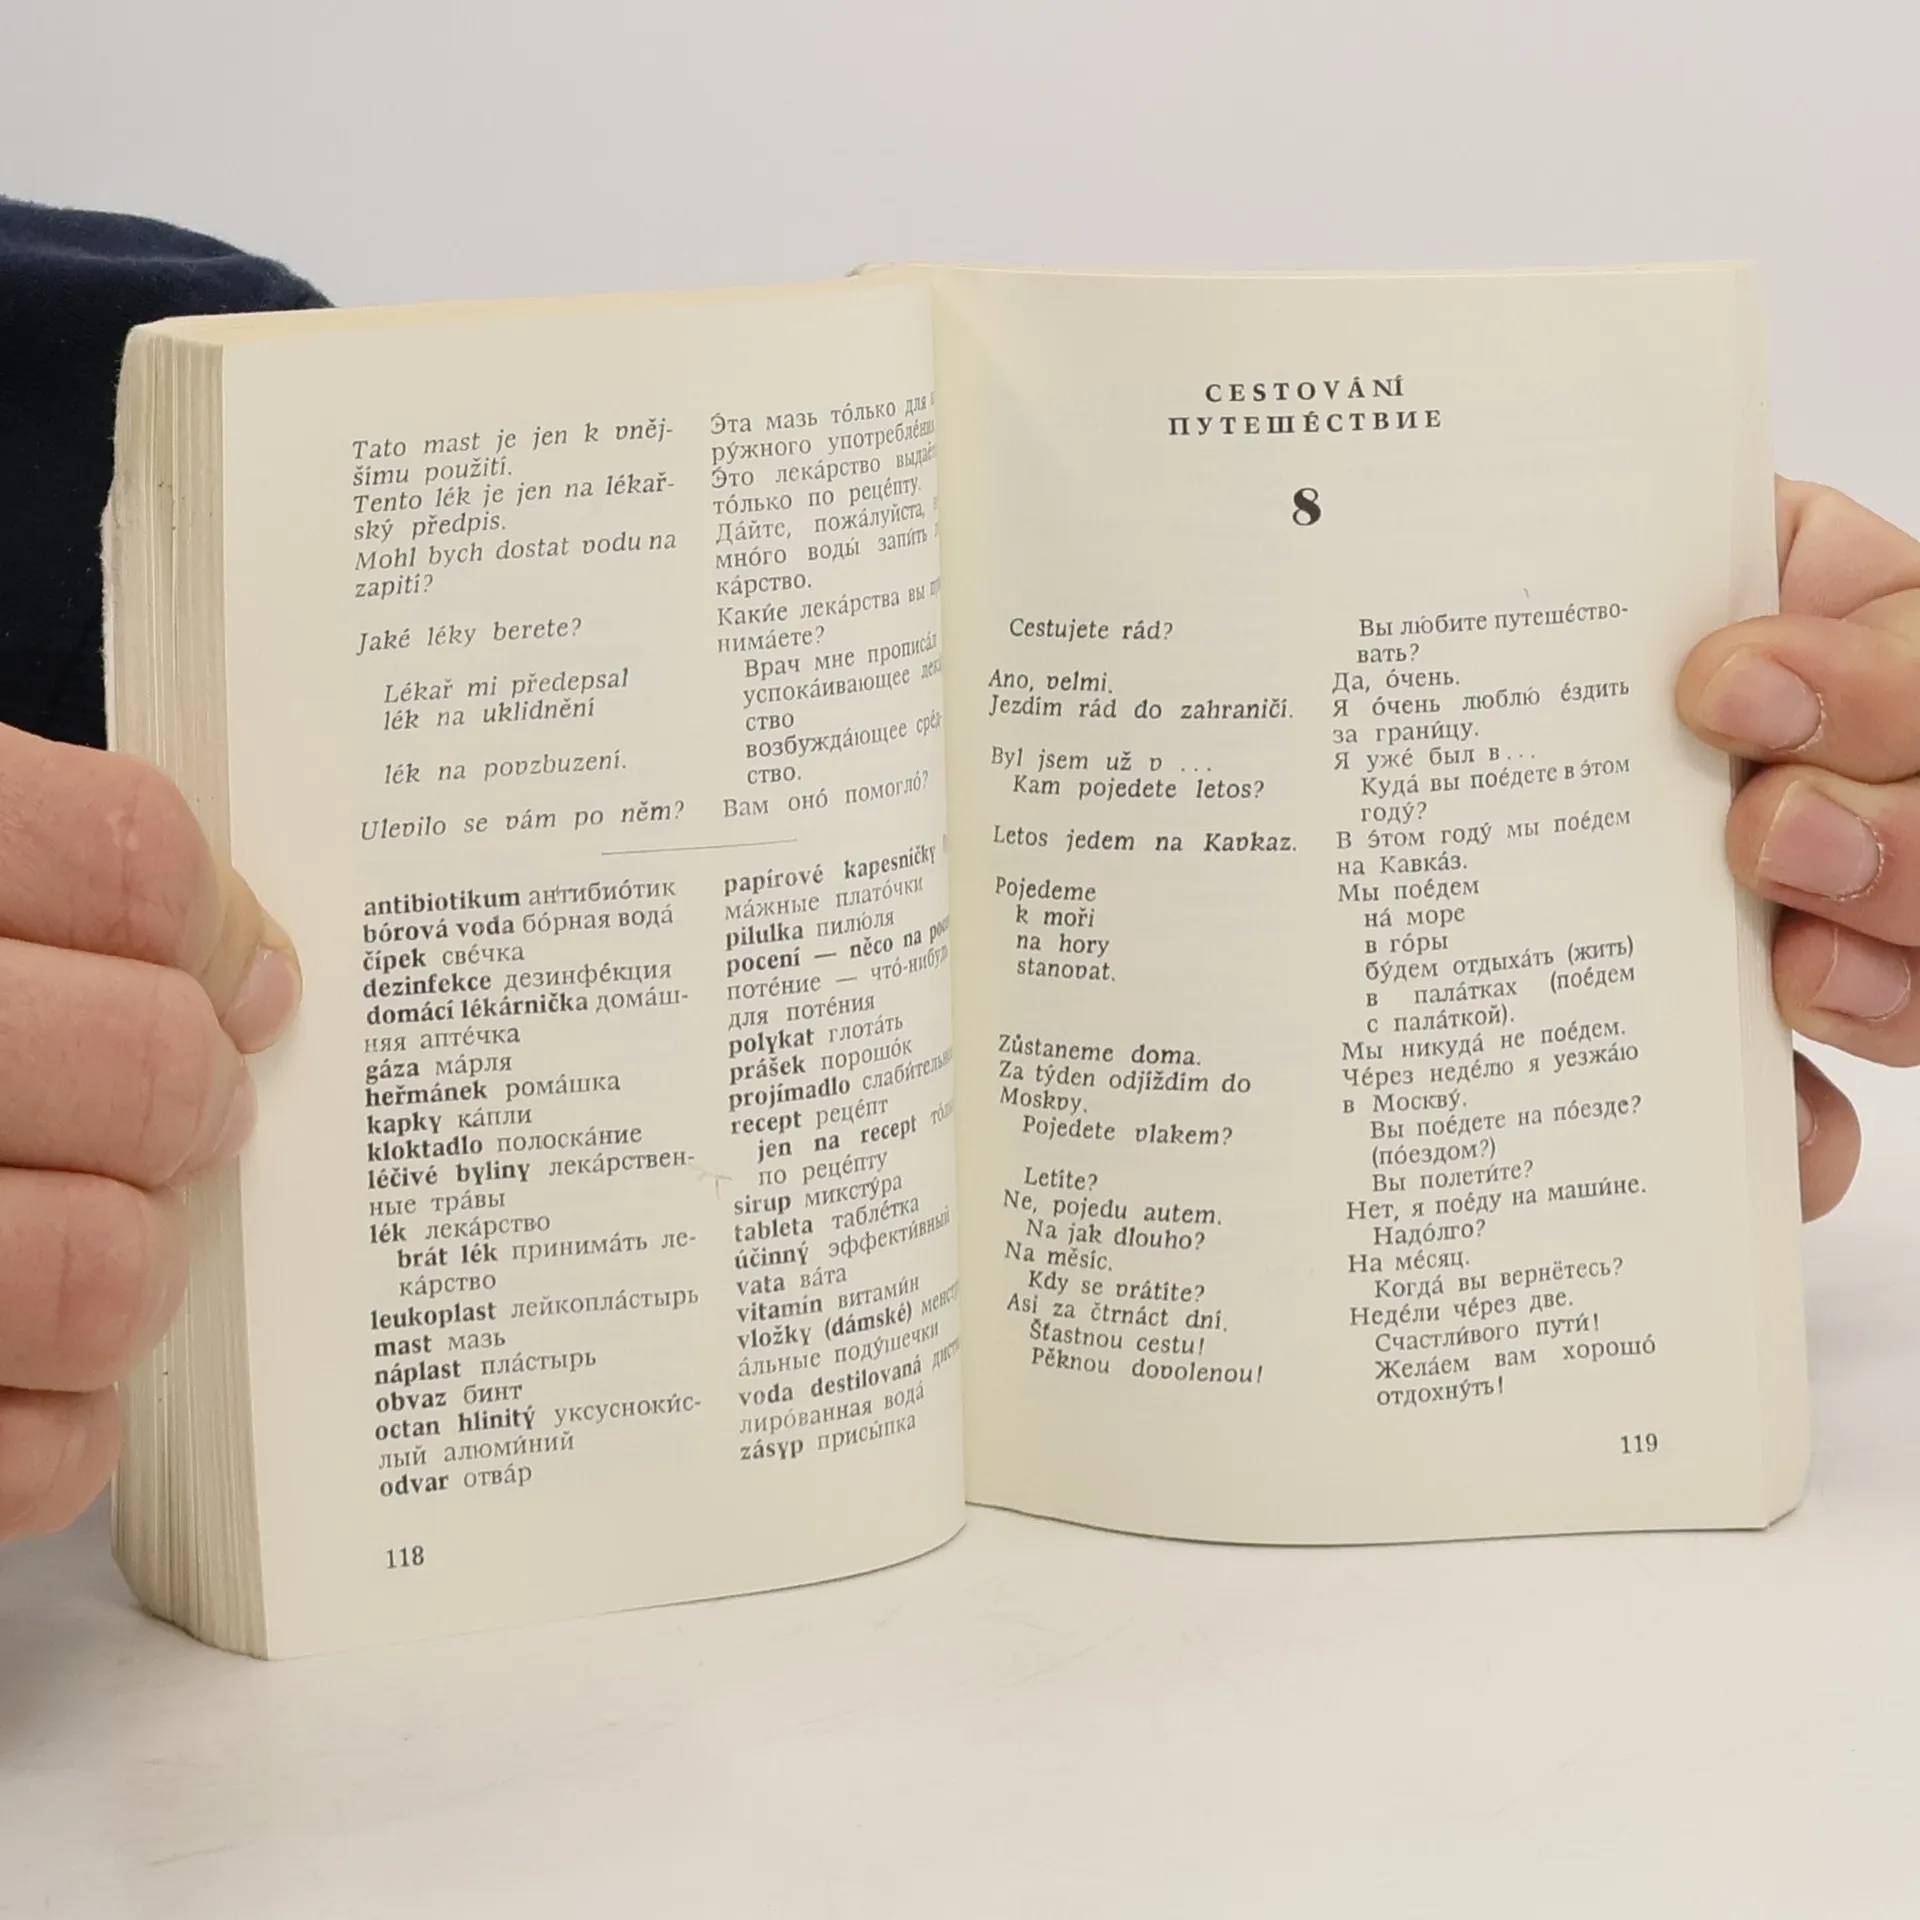 Tato mast je jen k vněj-
šímu použití.
Tento lék je jen na lékař-
ský předpis.
Mohl bych dostat vodu na
zapití?
Jaké léky berete?
Lékař mi předepsal
lék na uklidnění
lék na povzbuzení.
Ulevilo se vám po něm?
Э́та мазь то́лько для
ру́жного употребле́ния
Э́то лека́рство выдаёт
то́лько по реце́пту.
Да́йте, пожа́луйста,
мно́го воды́ запи́ть
ка́рство.
Каки́е лека́рства вы
нима́ете?
Врач мне прописа́л
успока́ивающее
ство
возбужда́ющее сре́д-
ство.
Вам оно́ помогло́?
antibiotikum антибио́тик
bórová voda бо́рная вода́
čípek све́чка
dezinfekce дезинфе́кция
domácí lékárnička дома́ш-
няя апте́чка
gáza ма́рля
heřmánek рома́шка
kapky ка́пли
kloktadlo полоска́ние
léčivé byliny лека́рствен-
ные тра́вы
lék лека́рство
brát lék принима́ть ле-
ка́рство
leukoplast лейкопла́стырь
mast мазь
náplast пла́стырь
obvaz бинт
octan hlinitý уксусноки́с-
лый алюми́ний
odvar отва́р
papírové kapesníčky
ма́жные плато́чки
pilulka пилю́ля
pocení — něco na
поте́ние — что́-нибудь
для поте́ния
polykat глота́ть
prášek порошо́к
projímadlo слаби́тельное
recept реце́пт
jen na recept
по реце́пту
sirup миксту́ра
tableta табле́тка
účinný эффекти́вный
vata ва́та
vitamín витами́н
vložky (dámské)
а́льные поду́шечки
voda destilovaná
лиро́ванная вода́
zásyp присы́пка
118
CESTOVÁNÍ
ПУТЕШЕ́СТВИЕ
8
Cestujete rád?
Ano, velmi.
Jezdím rád do zahraničí.
Byl jsem už v ...
Kam pojedete letos?
Letos jedem na Kavkaz.
Pojedeme
k moři
na hory
stanovat.
Zůstaneme doma.
Za týden odjíždím do
Moskvy.
Pojedete vlakem?
Letíte?
Ne, pojedu autem.
Na jak dlouho?
Na měsíc.
Kdy se vrátíte?
Asi za čtrnáct dní.
Šťastnou cestu!
Pěknou dovolenou!
Вы лю́бите путеше́ство-
вать?
Да, о́чень.
Я о́чень люблю́ е́здить
за грани́цу.
Я уже́ был в...
Куда́ вы пое́дете в э́том
году́?
В э́том году́ мы пое́дем
на Кавка́з.
Мы пое́дем
на́ море
в го́ры
бу́дем отдыха́ть (жить)
в пала́тках (пое́дем
с пала́ткой).
Мы никуда́ не пое́дем.
Че́рез неде́лю я уезжа́ю
в Москву́.
Вы пое́дете на по́езде?
(по́ездом?)
Вы полети́те?
Нет, я пое́ду на маши́не.
Надо́лго?
На ме́сяц.
Когда́ вы вернётесь?
Неде́ли че́рез две.
Счастли́вого пути́!
Жела́ем вам хорошо́
отдохну́ть!
119